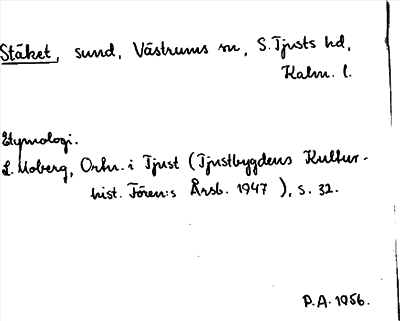 Stäket, sund, Västrums sn, S. Tjusts hd,
Kalm. l.
Etymologi.
L. Moberg, Ortn. i Tjust (Tjustbygdens Kultur-
hist. Fören:s Årsb. 1947), s. 32.
P.A. 1956.